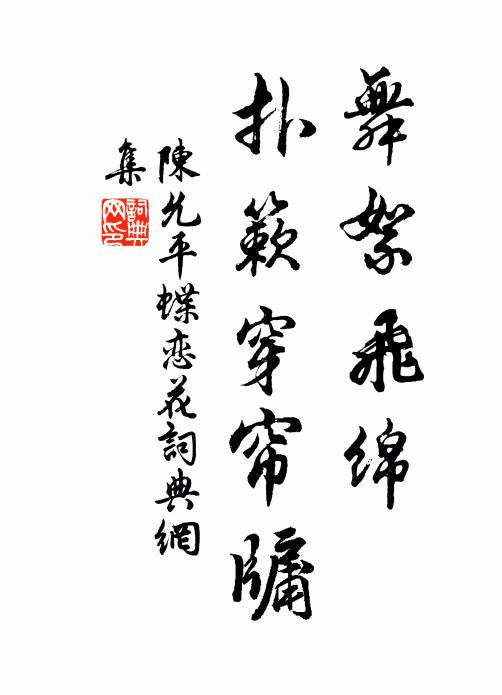 舞絮飛綿
扑簌穿帘牖
陳允平蝶恋花詞典網
集
詞典
网印